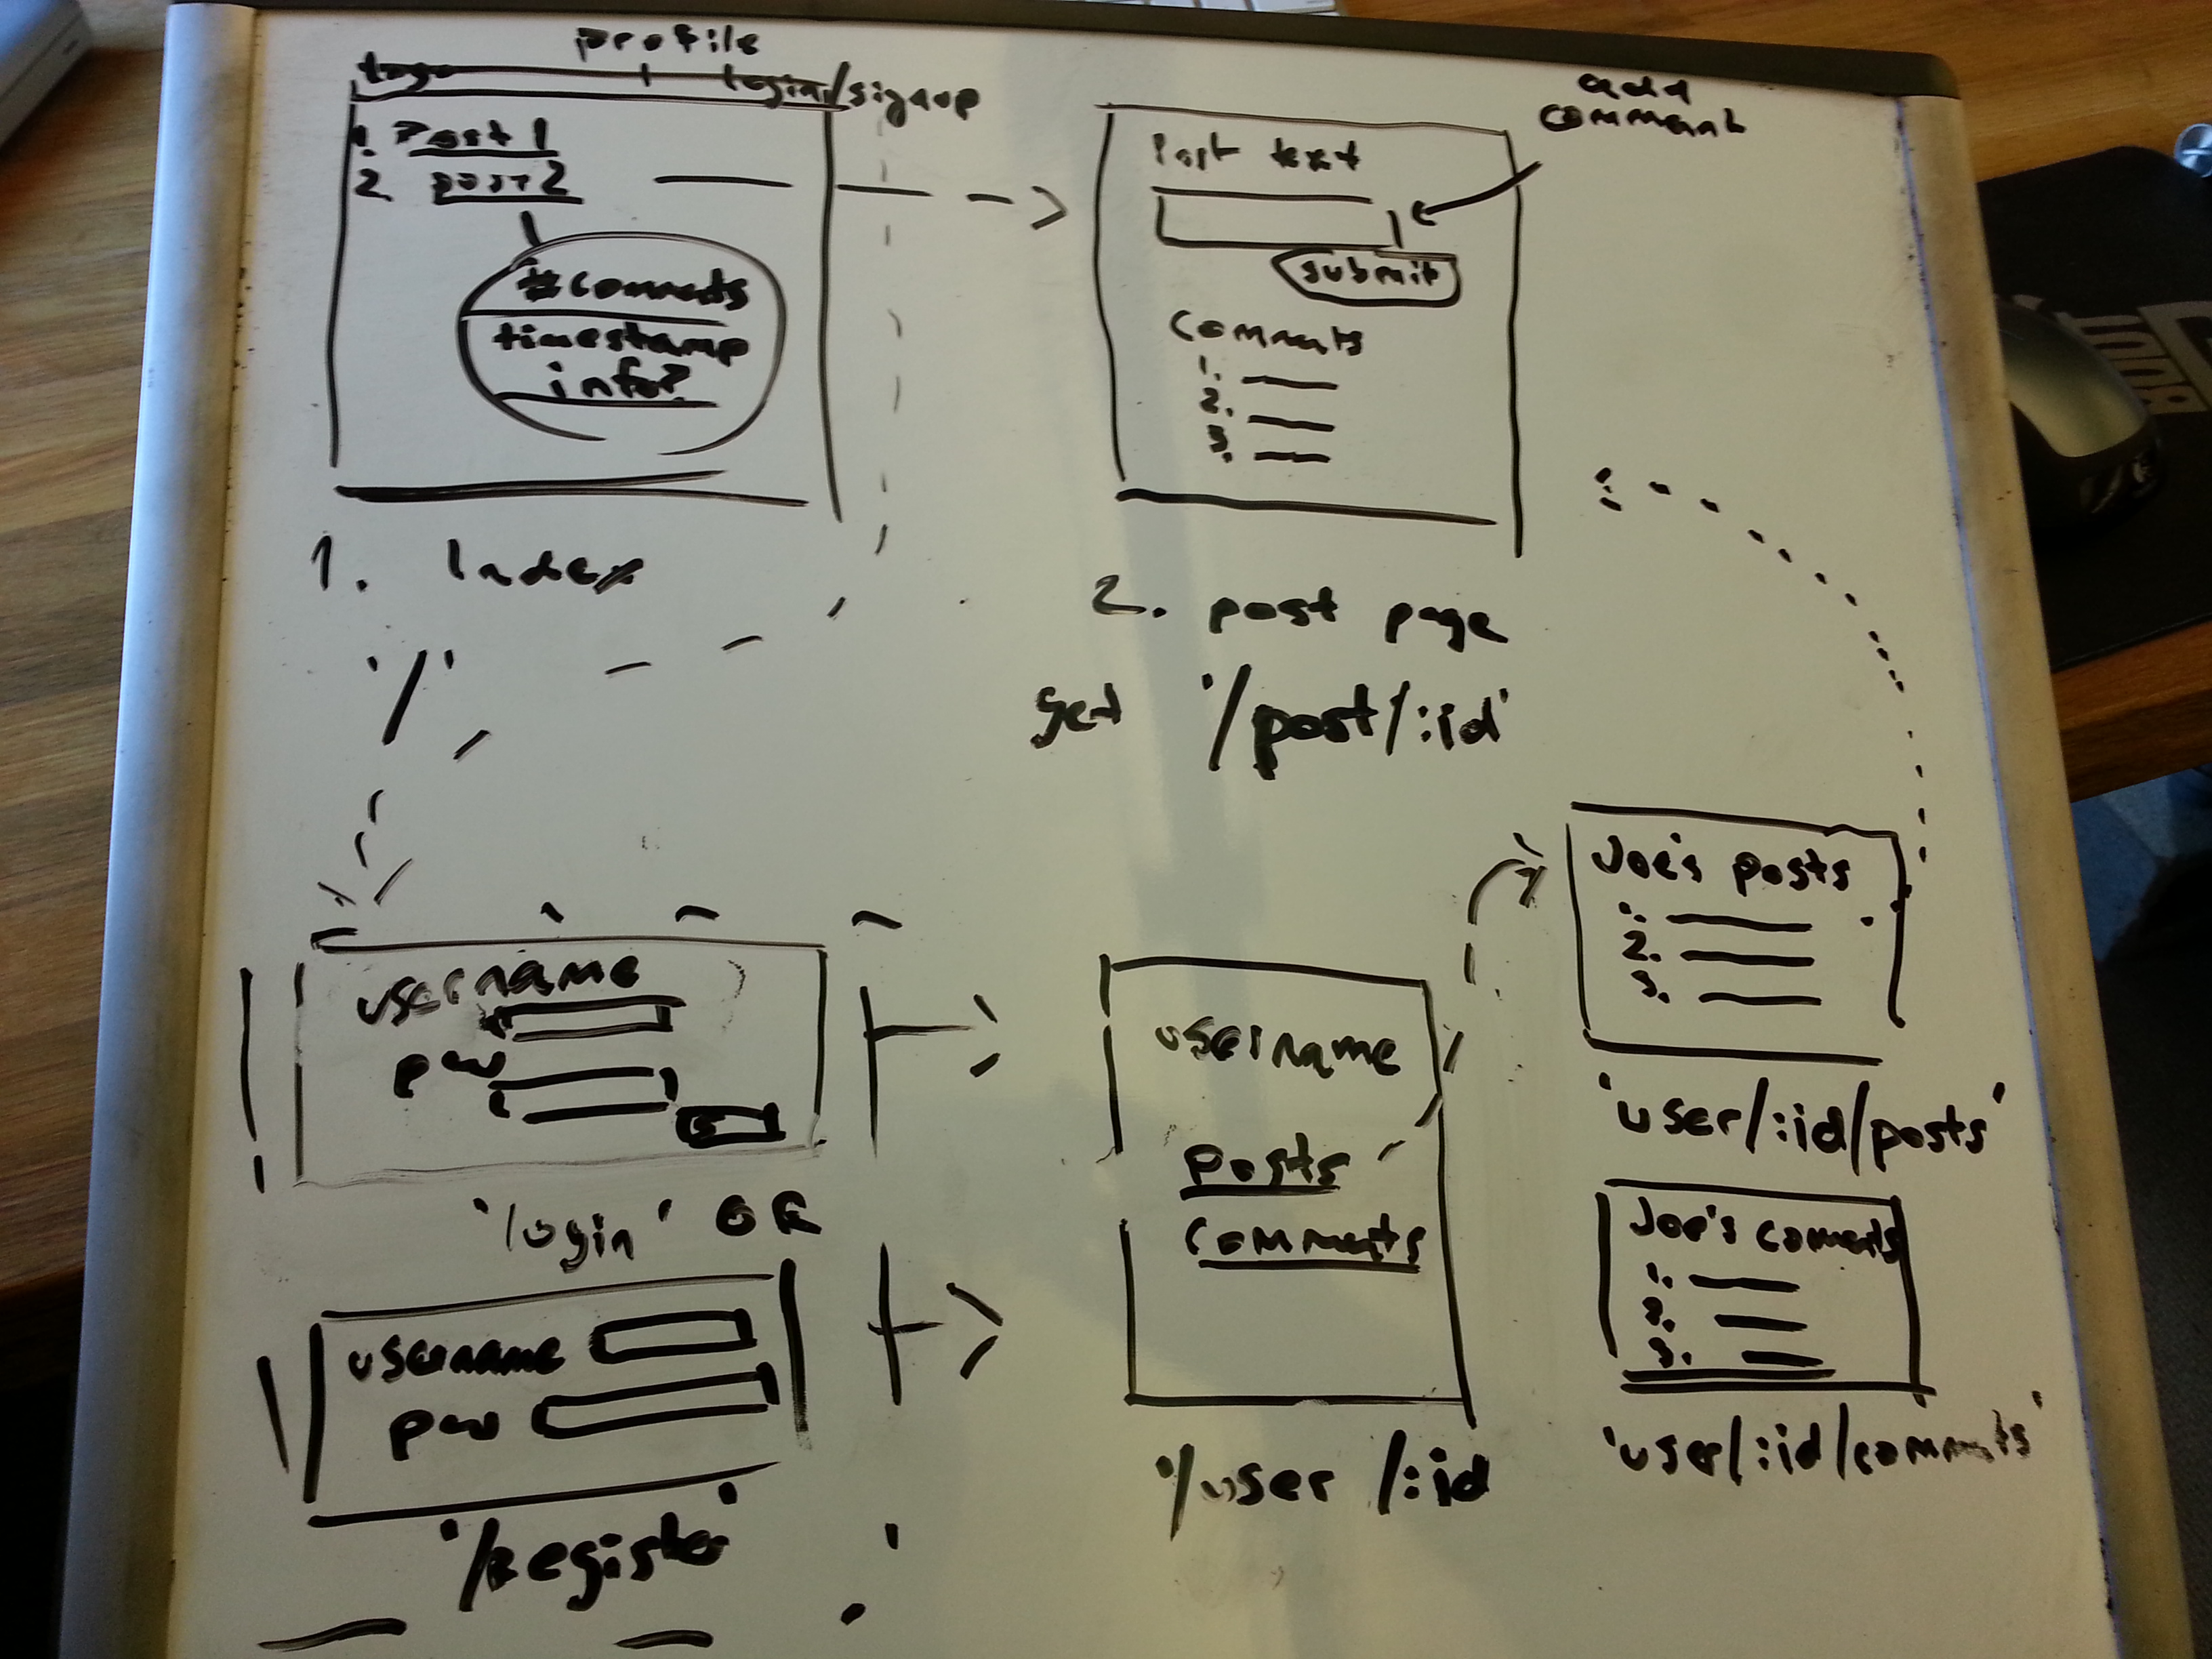 profile
logo
login/signup
1. Post 1
2. post 2
#comments
timestamp
info?
1. Index
'/'
add
comment
Post text
submit
Comments
1.
2.
3.
2. post page
get '/post/:id'
username
pw
'login' OR
username
pw
'/Register'
username
posts
comments
'/user/:id
Joe's posts
1.
2.
3.
'user/:id/posts'
Joe's comments
1.
2.
3.
'user/:id/comments'